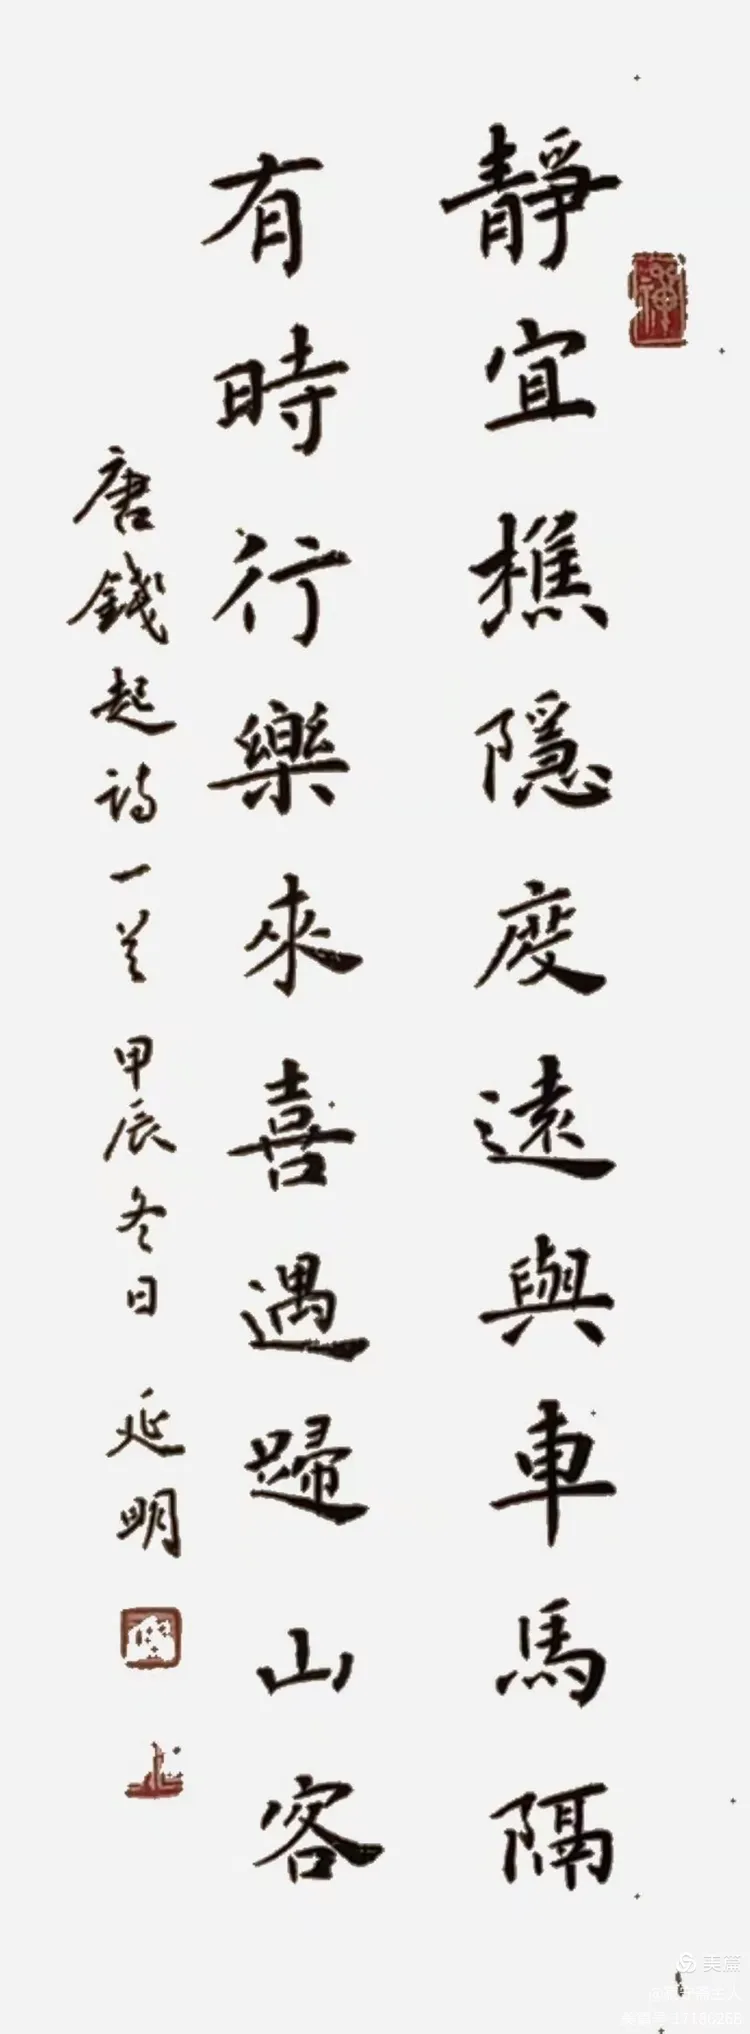 靜宜樵隱度遠與車馬隔
有時行樂來喜遇歸山客
唐錢起詩一首 甲辰冬日 延明
禪
美篇